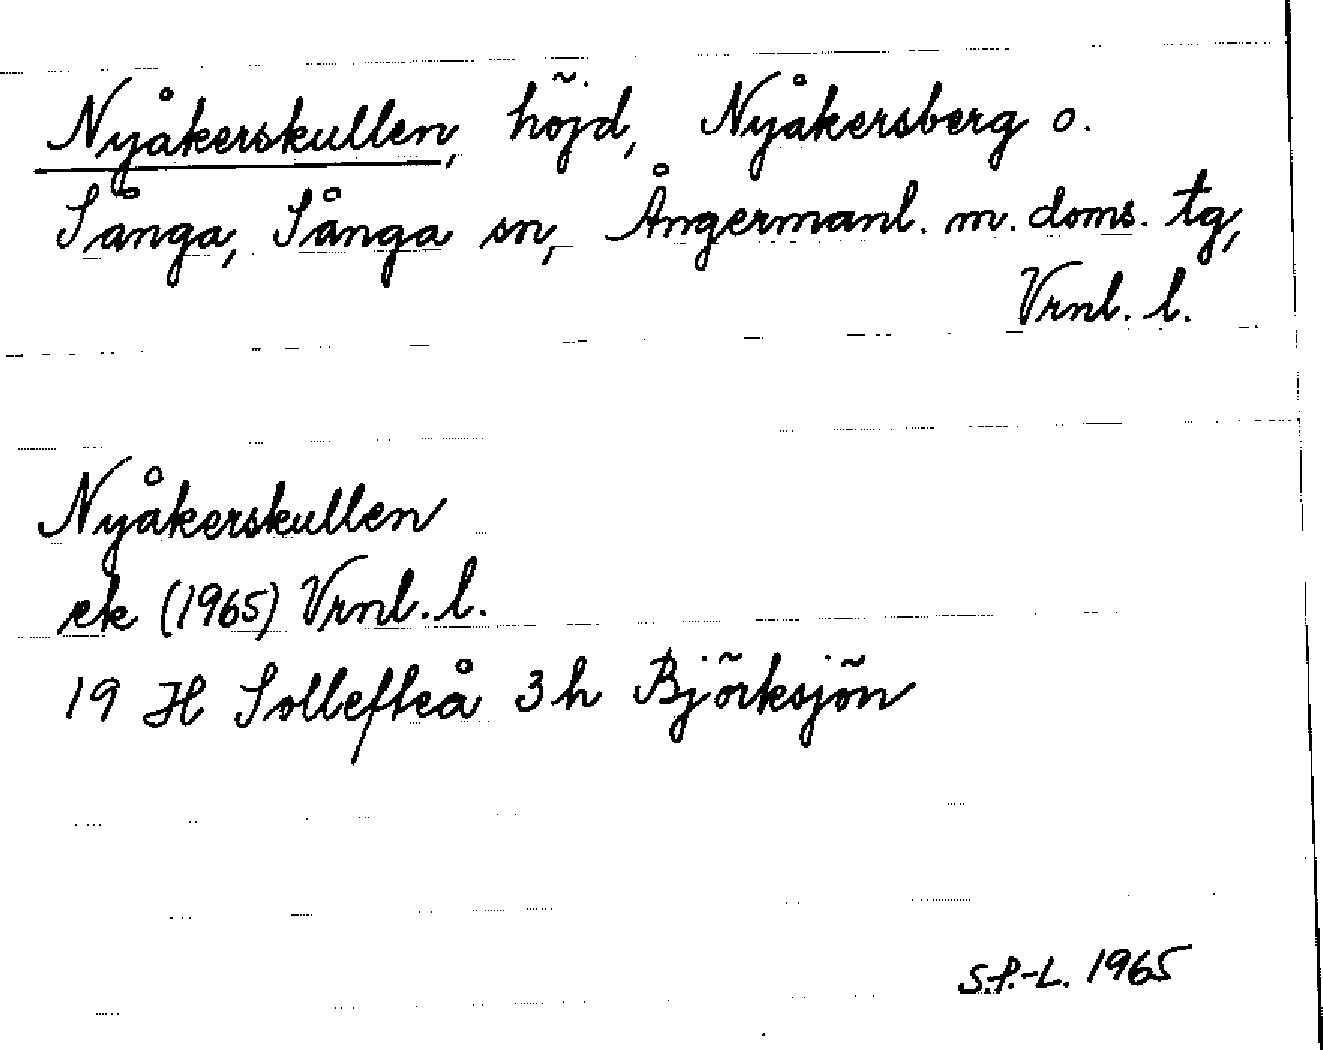 Nyåkerskullen, höjd, Nyåkersberg o.
Sånga, Sånga sn, Ångermanl. m. doms. tg,
Vrnl. l.
Nyåkerskullen
ek (1965) Vrnl. l.
19 H Sollefteå 3h Björksjön
S.P.-L. 1965